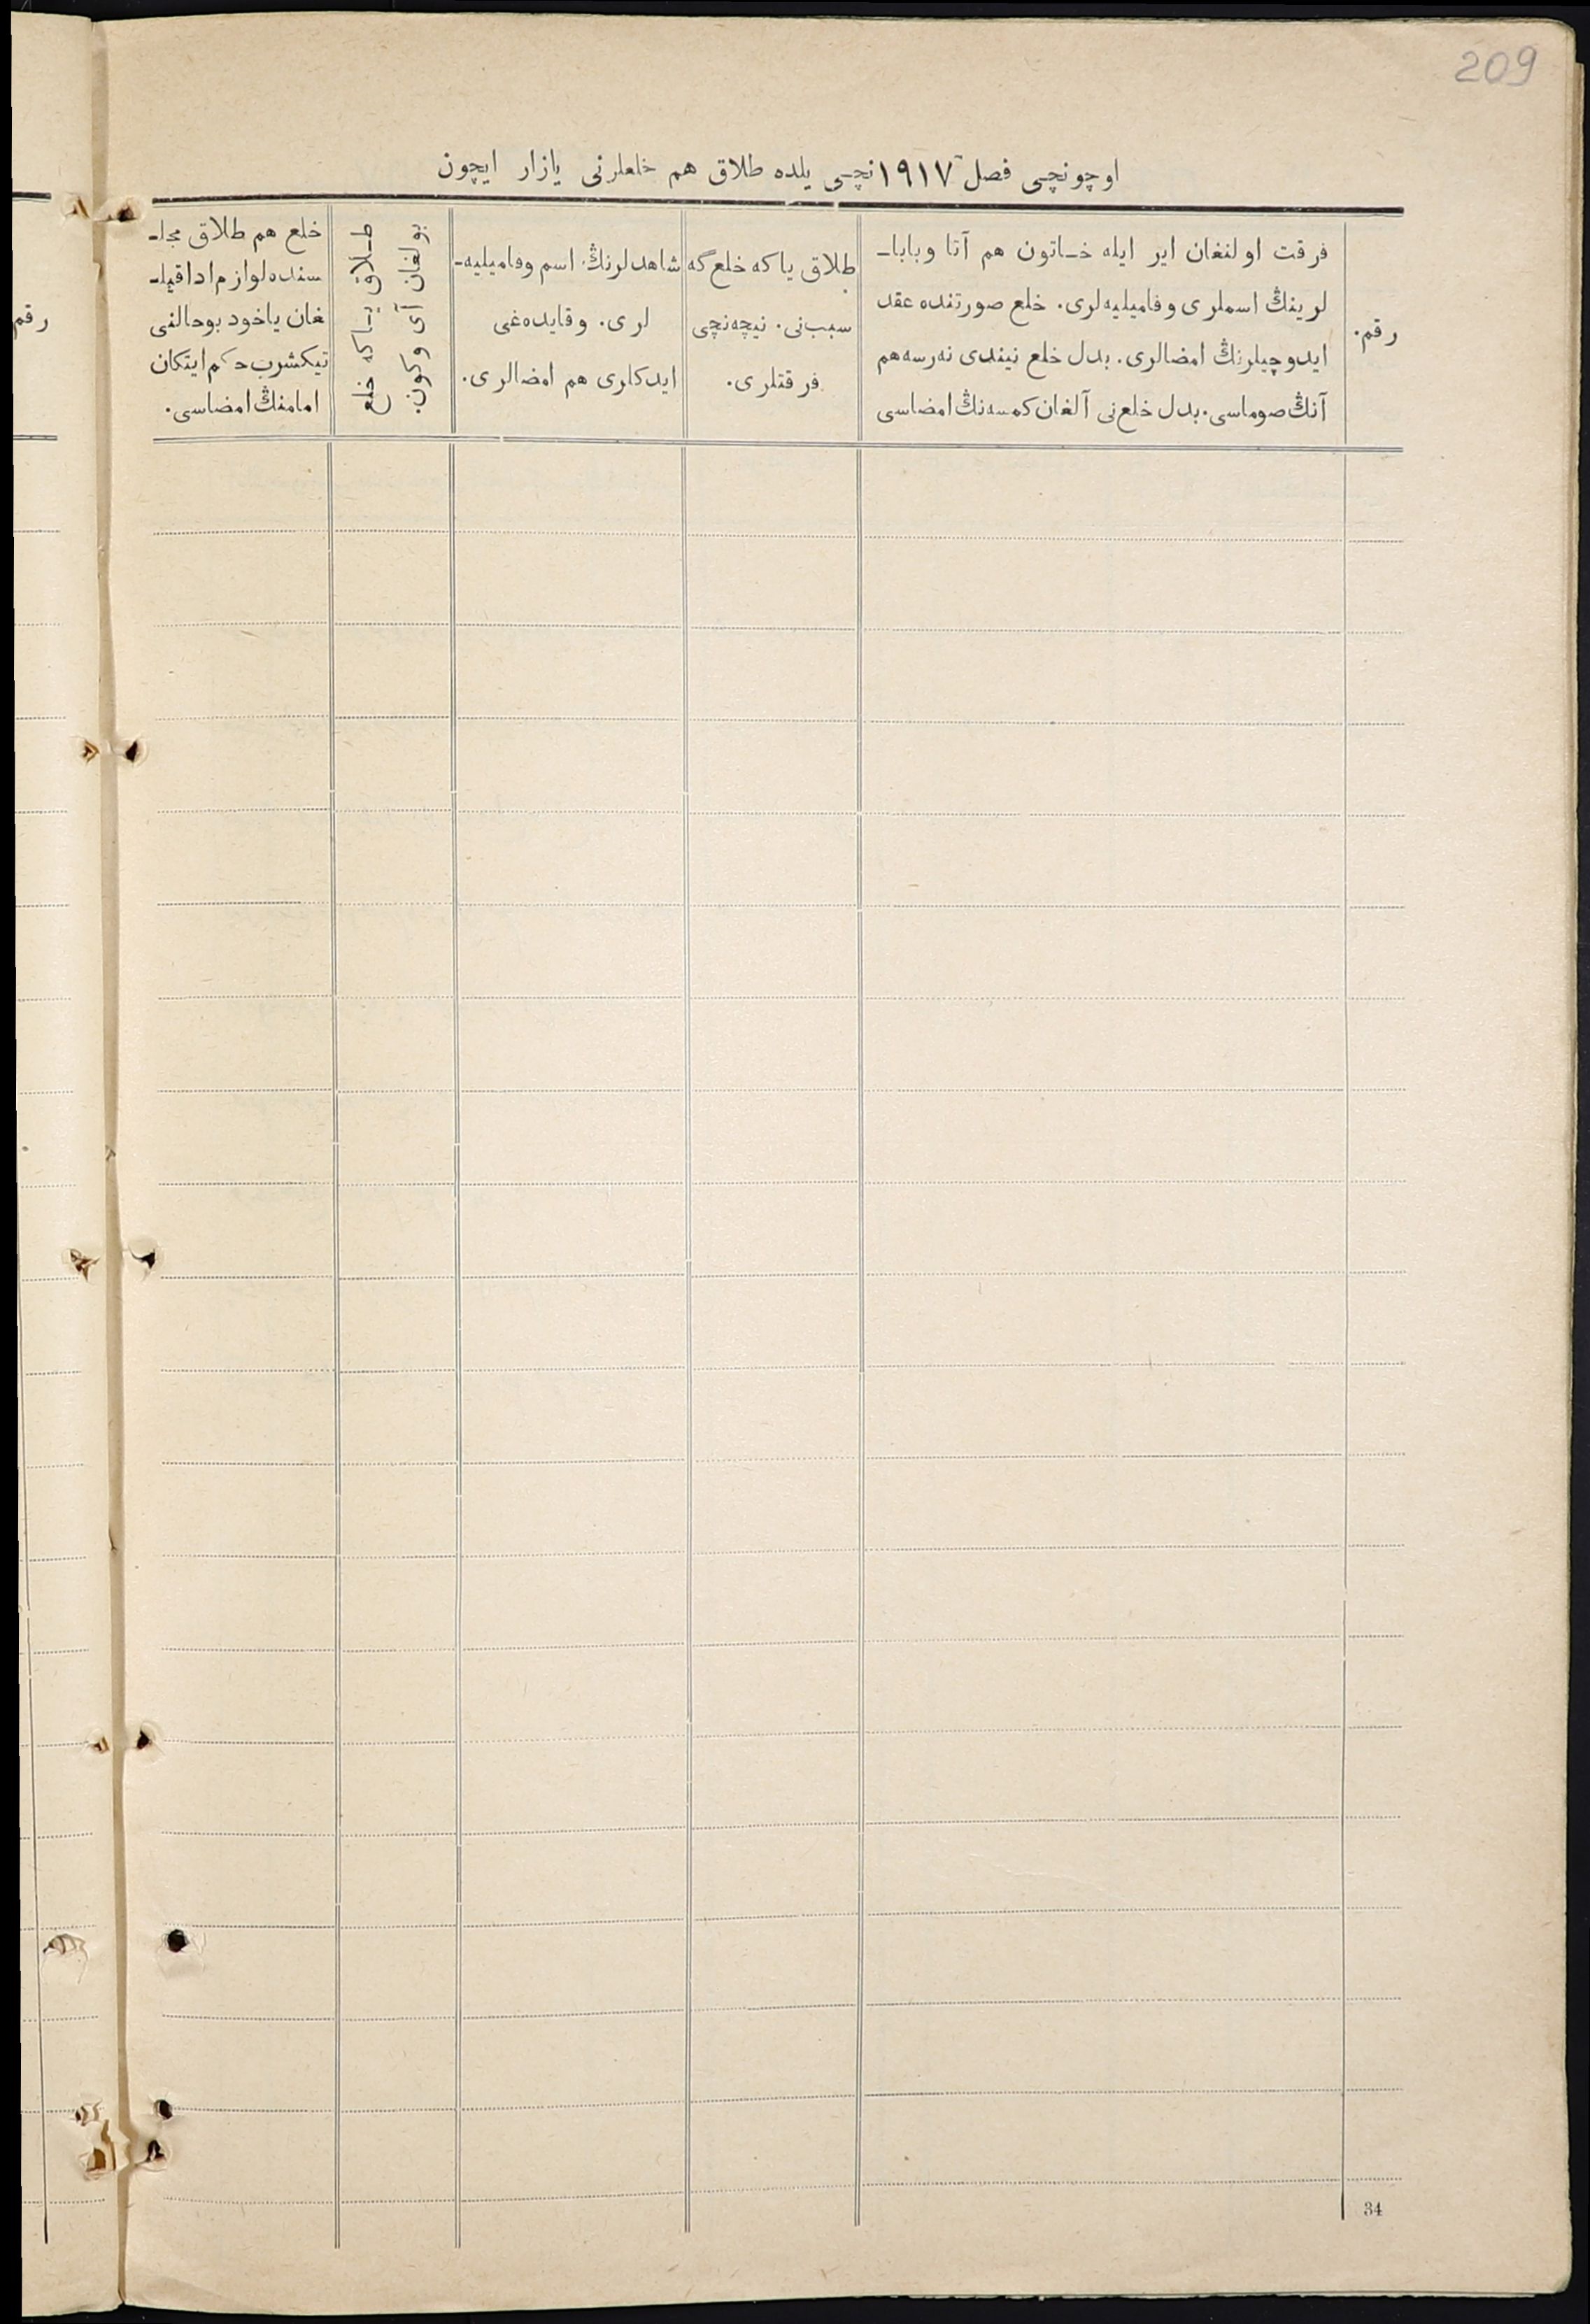 209
اوچونچی فصل ١٩١٧نچی یلده طلاق هم خلعلرنی یازار ایچون
رقم.
فرقت اولنغان ایر ایله خاتون هم آتا وبابا-
لرینڭ اسملری وفامیلیه‌لری. خلع صورتنده عقد
ایدوچیلرنڭ امضالری. بدل خلع نیندی نه‌رسه‌هم
آنڭ صوماسی. بدل خلع‌نی آلغان کمسه‌نڭ امضاسی
طلاق یا که خلع گه
سبب‌نی. نیچه‌نچی
فرقتلری.
شاهدلرنڭ اسم وفامیلیه-
لری. وقایده‌غی
ایدکلری هم امضالری.
طلاق یا که خلع
بولغان آی وکون.
خلع هم طلاق مجلـ
سنده لوازم ادا قیلـ
غان یاخود بوحالنی
تیکشرب حکم ایتکان
امامنڭ امضاسی.
رقم
34